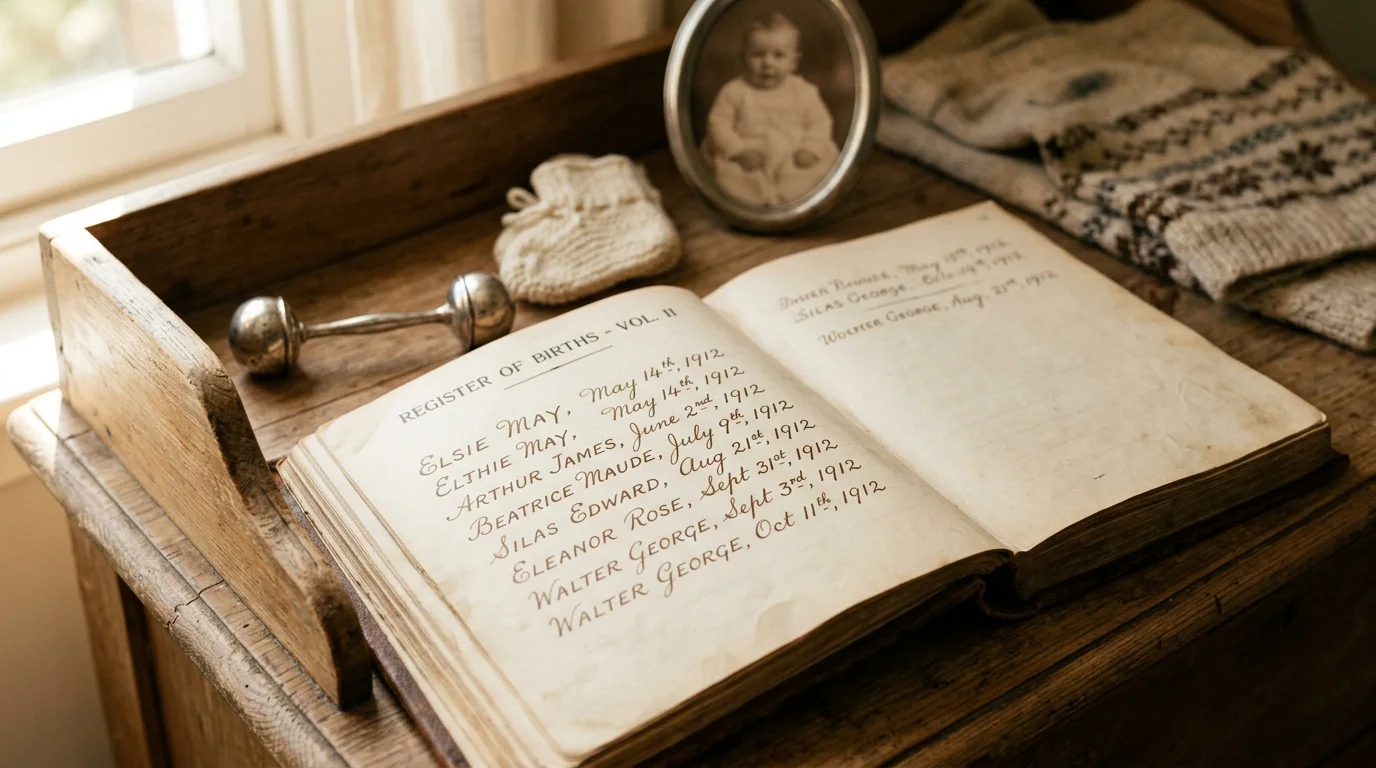 REGISTER OF BIRTHS - VOL. II
ELSIE MAY, May 14th, 1912
ELTHIE MAY, May 14th, 1912
ARTHUR JAMES, June 2nd, 1912
BEATRICE MAUDE, July 9th, 1912
SILAS EDWARD, Aug 21st, 1912
ELEANOR ROSE, Sept 31st, 1912
WALTER GEORGE, Sept 3rd, 1912
WALTER GEORGE, Oct 11th, 1912
May
SILAS GEORGE, Oct. 1912
GEORGE, Aug. 21st, 1912